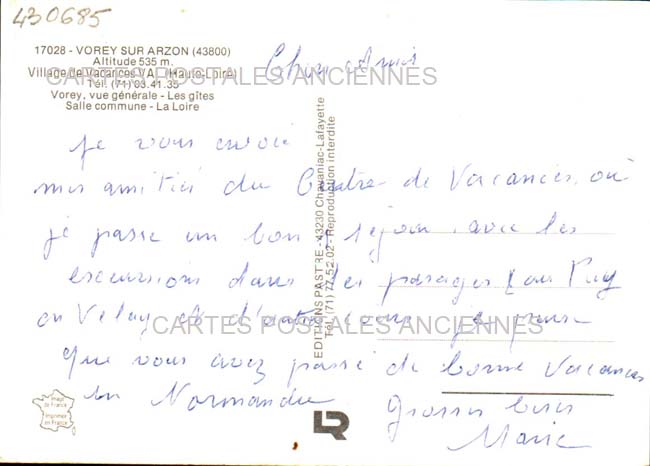 430685
17028 - VOREY SUR ARZON (43800)
Altitude 535 m.
Village de Vacances VAL (Haute-Loire)
Tél. (71) 03.41.35
Vorey, vue générale - Les gîtes
Salle commune - La Loire
Chers Amis
CARTES POSTALES ANCIENNES
Je vous envoie
mes amitiés du Centre de Vacances où
je passe un bon séjour, avec les
excursions dans les parages (au Puy
en Velay et d'autres je pense
CARTES POSTALES ANCIENNES
que vous avez passé de bonne Vacances
en Normandie Grosses bises
Marie
EDITIONS PASTRE - 43230 Chavaniac-Lafayette
Tél. (71) 77.52.02 - Reproduction interdite
Image de France
Imprimé en France
LR